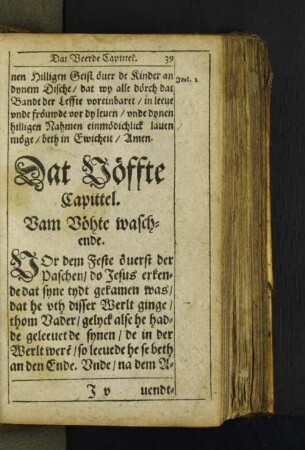 Dat Veerde Capittel. 39
nen Hilligen Geist öuer de Kinder an
dynem Dische / dat wy alle dörch dat
Bandt der Leffte voreinbaret / in leeue
vnde fröuwde vor dy leuen / vnde dynen
hilligen Nahmen einmödichlick lauen
möge / beth in Ewicheit / Amen.
Dat Vöffte
Capittel.
Vam Vöhte wasch-
ende.
VOr dem Feste öuerst der
Paschen / do Jesus erken-
de dat syne tydt gekamen was /
dat he vth disser Werlt ginge /
thom Vader / gelyck alse he had-
de geleeuet de synen / de in der
Werlt werē / so leeuede he se beth
an den Ende. Vnde / na dem A-
I v uendt-